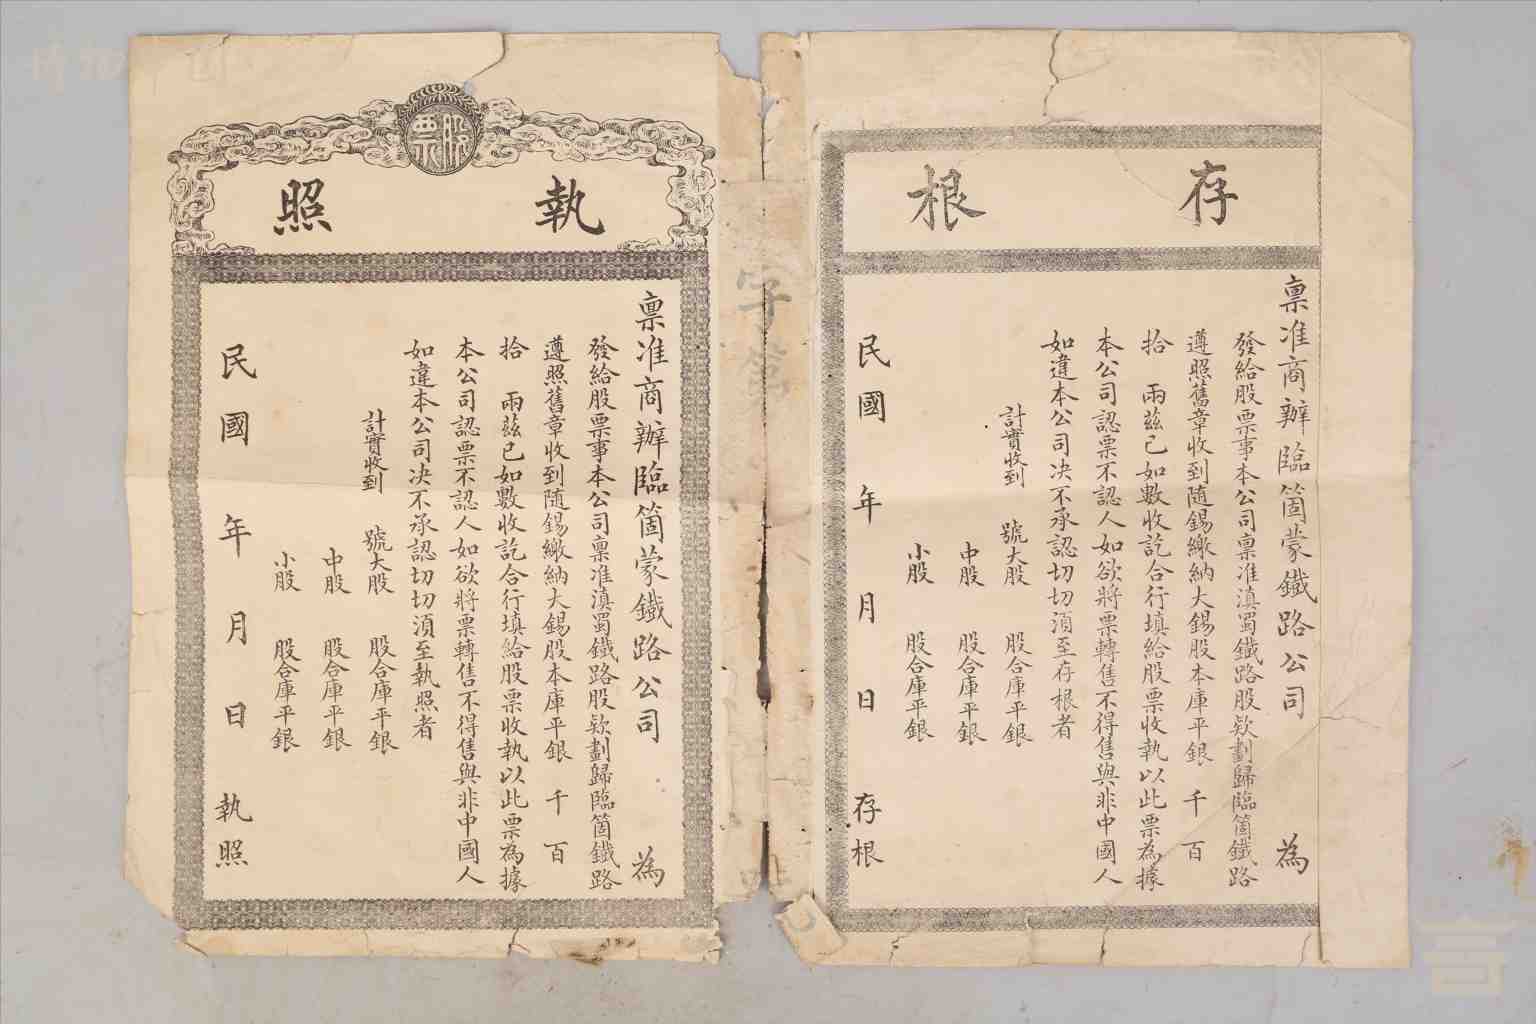 存根
稟准商辦臨箇蒙鐵路公司 為
發給股票事本公司稟准滇蜀鐵路股欵劃歸臨箇鐵路
遵照舊章收到随錫繳納大錫股本庫平銀 千 百
拾 兩茲已如數收訖合行填給股票收執以此票為據
本公司認票不認人如欲將票轉售不得售與非中國人
如違本公司决不承認切切須至存根者
計實收到 號大股 股合庫平銀
中股 股合庫平銀
小股 股合庫平銀
民國 年 月 日 存根
字第
股票
執照
稟准商辦臨箇蒙鐵路公司 為
發給股票事本公司稟准滇蜀鐵路股欵劃歸臨箇鐵路
遵照舊章收到随錫繳納大錫股本庫平銀 千 百
拾 兩茲已如數收訖合行填給股票收執以此票為據
本公司認票不認人如欲將票轉售不得售與非中國人
如違本公司决不承認切切須至執照者
計實收到 號大股 股合庫平銀
中股 股合庫平銀
小股 股合庫平銀
民國 年 月 日 執照